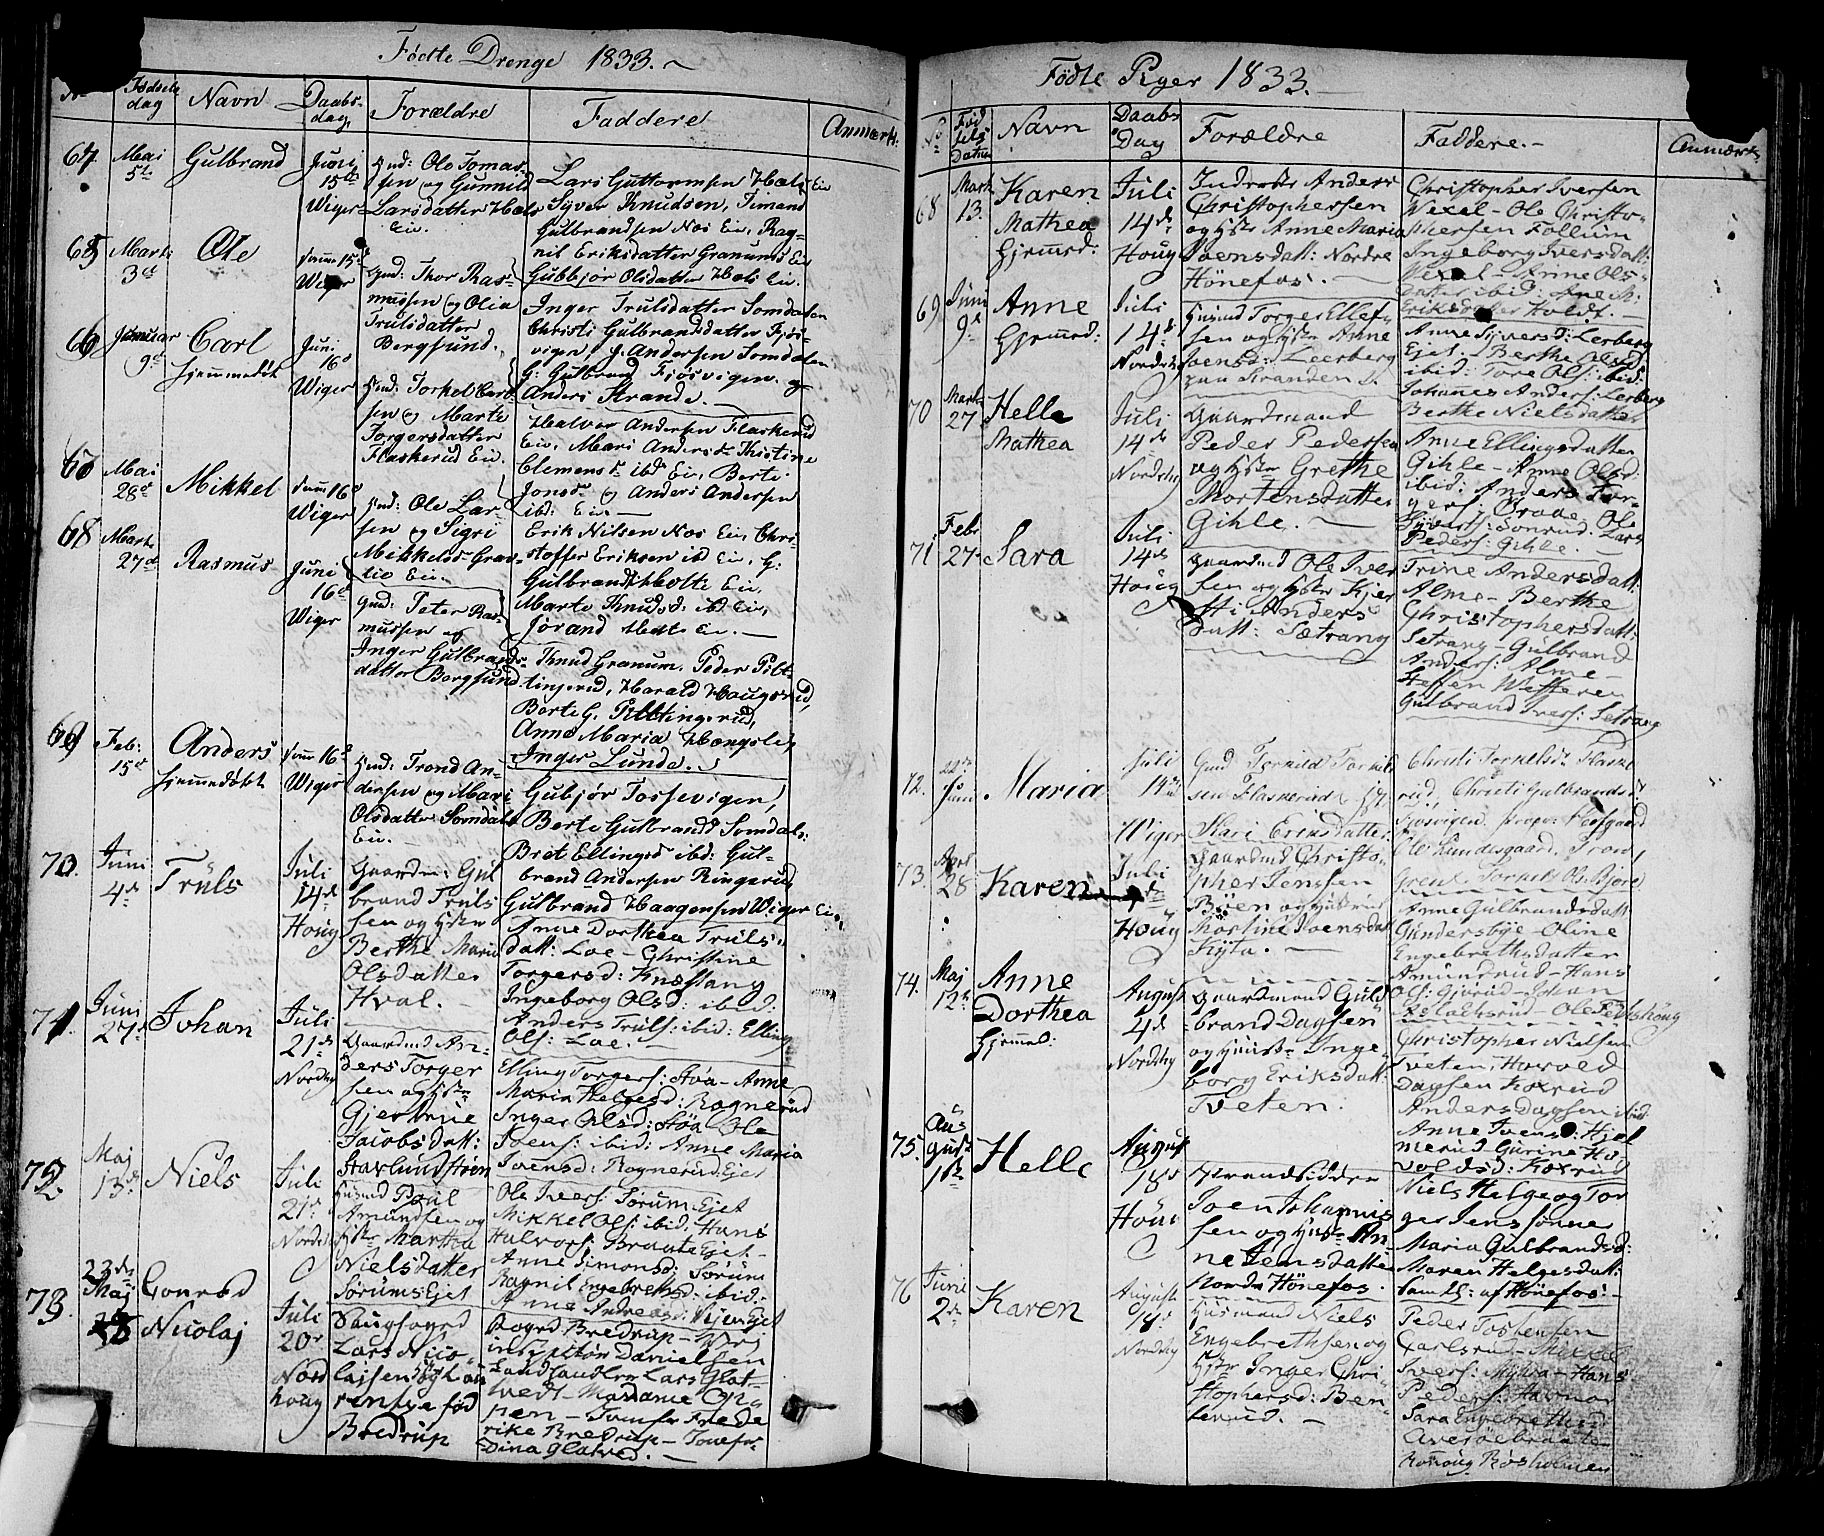 Födte Drenge 1833.
No Fødsels dag Navn Daabs dag Forældre Faddere Anmærk:
64 Mai 5te Gulbrand Juni 15de Wiger
Gmd: Ole Tomas-
sen og Gunnild
Larsdatter Hæls
Eie.
Lars Guttormsen Hæls Eie
Syver Knudsen, Simand
Gulbrandsen Næs Eie, Rag-
nil Eriksdatter Granums Eie
Gubbjør Olsdatter Hæls Eie.
65 Marts 3de Ole Juni 15de Wiger
Gmd: Thor Ras-
mussen og Olia
Trulsdatter
Bergsund.
Inger Trulsdatter Somdalen
Christi Gulbrandsdatter Fjös-
vigen, J. Andersen Somdalen
G: Gulbrand Fjösvigen og
Anders Strande.
66 Januar 9de Carl
hjemmedöbt
Juni 16d Wiger
Hmd: Torkel Carl-
sen og Marte
Torgersdatter
Flaskerud Eie.
Halvor Andersen Flaskerud
Eie, Mari Andersdr Christine
Clemensdr ibd Eie, Berte
Jonsdr og Anders Andersen
ibd: Eie.
67 Mai 28de Mikkel Juni 16d Wiger
Hmd: Ole Lar-
sen og Sigri
Mikkelsdr Græs-
lie Eie.
Erik Nilsen Næs Eie, Chri-
stoffer Eriksen ibd Eie, G:
Gulbrand Holte Eie,
Marte Knudsd: ibd Eie,
Jörand Holte Eie.
68 Marts 27de Rasmus Juni 16d Wiger
Gmd: Peter Ras-
mussen og
Inger Gulbrands-
datter Bergsund.
Knud Granum, Peder Pilt-
tingsrud, Harald Haugsrud,
Berte G. Pilttingsrud,
Anne Maria Hængsle,
Inger Lunde.
69 Feb: 15de Anders
hjemmedøbt
Juni 16d Wiger
Hmd: Trond An-
dersen og Mari
Olsdatter Somdals
Eie.
Gubjör Tossevigen,
Berte Gulbrandsd Somdals:
Bret Ellingsd ibd: Gul-
brand Andersen Ringerud,
Gulbrand Haagensen Wiger Eie.
70. Juni 4de Trüls Juli 14de Houg
Gaardm: Gul
brand Truls
sen og Hstr
Berthe Marie
Olsdatter
Hval.
Anne Dorthea Truls-
datt: Loe - Christine
Torgersd: Knestang
Ingeborg Olsd: ibid:
Anders Truls: ibid: Elling
Ols: Loe.
71. Juni 27de Johan Juli 21de Nordrehg
Gaardmd An-
ders Torger
sen og Hstr
Gjertrue
Jacobsdatt:
Stavlund Støen
Elling Torgers: Støa - Anne
Maria Helgesd: Rognerüd
Inger Olsd: Støa Ole
Joens: ibid: Anne Maria
Joensd: Rognerüd Ejet
72. Maj 13de Niels Juli 21d Nordrehg
Husmd Povl
Amundsen og
Hstr Martha
Nielsdatter
Sörums Ejet
Ole Ivers: Sörum Ejet
Mikkel Ols: ibid: Hans
Halvors: Braate Ejet -
Anne Simonsd: Sörum
Ragnil Engebrethsd: ibid:
Anne Andreasd: Vejen Ejet
73. 23de Maj Conrad
Nicolaj
Juli 20de Nord
houg
Saugfogd
Lars Nico-
laisen
født
Bredrup
Fogd Bredrup -
inspektör Danielsen
Landhandler Lars Glat-
vedt - Madame Op-
pen - Jomfr Frede
rike Bredrup - Jomfr
Dina Glatved.
Födte Piger 1833.
No Fød sels Datum Navn Daabs Dag Forældre Faddere. Anmærk:
68 Marts 13. Karen
Mathea
Hjemd:
Juli 14de Houg
Inderster Anders
Christophersen
og Hstr Anne Maria
Joensdatt: Nordre
Hönefos.
Christopher Iversen
Vexel - Ole Christo-
phersen Follum
Ingeborg Iversdatt:
Vexel - Anne Ols-
datter ibid: Ane M:
Eriksdatter Holdt.
69. Juni 9de Anne
Hjemd:
Juli 14de Nordrehg
Husmd Torger Ellef-
sen og Hstr Anne
Joensd: Leerberg
paa Stranden
Anne Syversd: Lerberg
Ejet - Berthe Olsd:
ibid: Tore Ols: ibid:
Johannes Anders: Lerberg
Berthe Nielsdatter
70 Marts 27 Helle
Mathea
Juli 14de Nordrehg
Gaardmand
Peder Pedersen
og Hstr Grethe
Mortensdatter
Gihle.
Anne Ellingsdatter
Gihle - Anne Olsd:
ibid: Anders Tor-
gers: Braae Ole
Sivers: Lars
Peders: Gihle.
71 Febr 27 Sara Juli 14de Houg
Gaardmd Ole Iver
sen og Hstr Kjer
sti Anders
datt: Sætrang
Trine Andersdatt:
Alme - Berthe
Christophersdatt:
Setrang - Gulbrand
Anders: Alme -
Steffen Wefferen
Gulbrand Ivers: Setrang
72. 22de Juni Maria Juli 14de Wiger
Gmd Torkild Torkild
sen Flaskerud og H
Kari Eriksdatter.
Christi Torkelsdr Flaske
rüd, Christi Gulbrandsdr
Fjosvigen,
Ole Lundesgaard, Tron
Torkel Ols: Björe
73. April 28 Karen Juli Houg
Gaardmd Christo-
pher Jenssen
Böen og Hustrue
Mortine Joensdatt:
Kyta.
Anne Gulbrandsdatt:
Gundersbye - Oline
Engebrethsdatter
Amundrud - Hans
Ols: Gjörud - Johan
Slaatsrud - Ole Fegtshöug
74. Maj 12te Anne
Dorthea
Hjemd:
August 4de Nordrehg
Gaardmand Guld
brand Dagsen
og Hustr Inge
borg Eriksdatt:
Tveten.
Christopher Nielsen
Tveten, Harvold
Dagsen Koxrüd
Anders Dagsen ibid
Anne Joensd: Hjel
merüd Gurine Ha-
voldsd: Koxrüd
75. August 1ste Helle August 18de Houg
Strandsidder
Joen Johannis
sen og Hustr An
ne Jensdatter
Nordre Hönefos
Niels Helge og Tor
ger Jenssönner
Maria Gulbrandsd:
Maren Helgesdatt:
samtl: af Hönefos
76 Juni 2de Karen August 18de Nordrehg
Husmand Niels
Engebrethsen og
Hstr Inger Chri
stophersd: Ben-
terud.
Peder Tostensen
Carlsrud - Mikkel
Ivers: Myhra - Hans
Peders:
Sara Engebrethsd:
Averöebraate -
Rosholmen